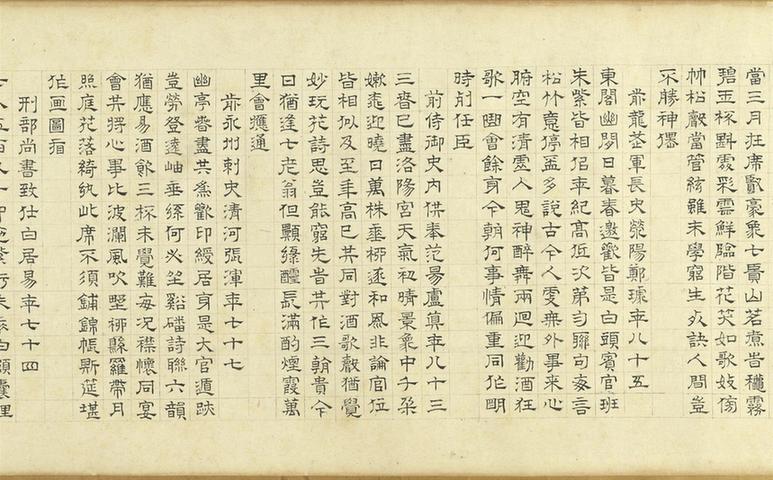 當三月狂席歡豪象七賢山茗煮旹穠霧
碧玉杯斟處彩雲鮮臨階花笑如歌妓傍
竹松聲當管絃雖未學窮生死訣人間豈
不勝神僊
前龍武軍長史滎陽鄭璩年八十五
東閣幽閒日暮春邀歡皆是白頭賓官班
朱紫皆相佀年紀高低次第勻聯句家言
松竹意停盃多說古今人更無外事來心
腑空有清虛入鬼神醉舞兩迴迎勸酒狂
歌一曲會餘身今朝何事情偏重同作明
時列任臣
前侍御史內供奉范陽盧真年八十三
三春已盡洛陽宮天氣初晴景象中千朵
嫩桃迎曉日萬株垂柳逐和風非論官位
皆相似及至年高已共同對酒歌聲猶覺
妙玩花詩思豈能窮先旹共作三朝貴今
日猶逢七老翁但願綠醽長滿酌煙霞萬
里會應通
前永州刺史清河張渾年七十七
幽亭春盡共為歡印綬居身是大官遁跡
豈勞登遠岫垂絲何必坐谿磻詩聯六韻
猶應易酒飲三杯未覺難每況襟懷同宴
會共將心事比波瀾風吹野柳懸羅帶日
照庭花落綺紈此席不須鋪錦帳斯筵堪
作画圖看
刑部尚書致仕白居易年七十四
七人五百八十四拖紫紆朱垂白鬚囊里